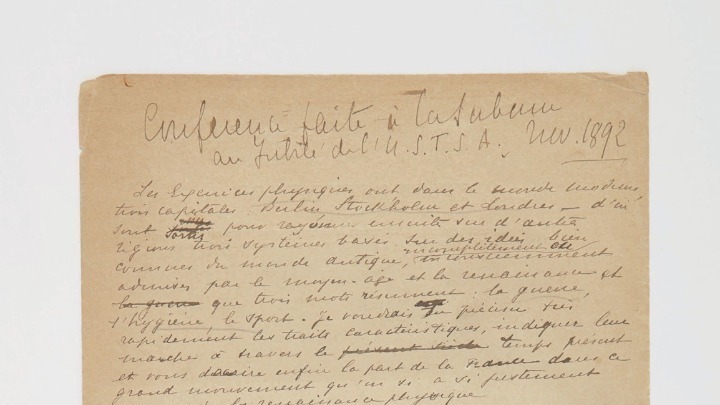 Conférence faite à la Sorbonne
au Jubilé de l'U.S.F.S.A. Nov. 1892
Les Exercices physiques ont dans le monde moderne
trois capitales: Berlin Stockholm et Londres — d'où
sont sortis pour rayonner ensuite sur d'autres
régions trois systèmes basés sur des idées bien
connues du monde antique, incomplètement et
inconsciemment
admises par le moyen-âge et la renaissance et
la guerre que trois mots résument: la guerre,
l'hygiène, le sport. Je voudrais en préciser très
rapidement les traits caractéristiques, indiquer leur
marche à travers le présent siècle temps présent
et vous dire enfin la part de la France dans ce
grand mouvement qu'on a si justement
la renaissance physique